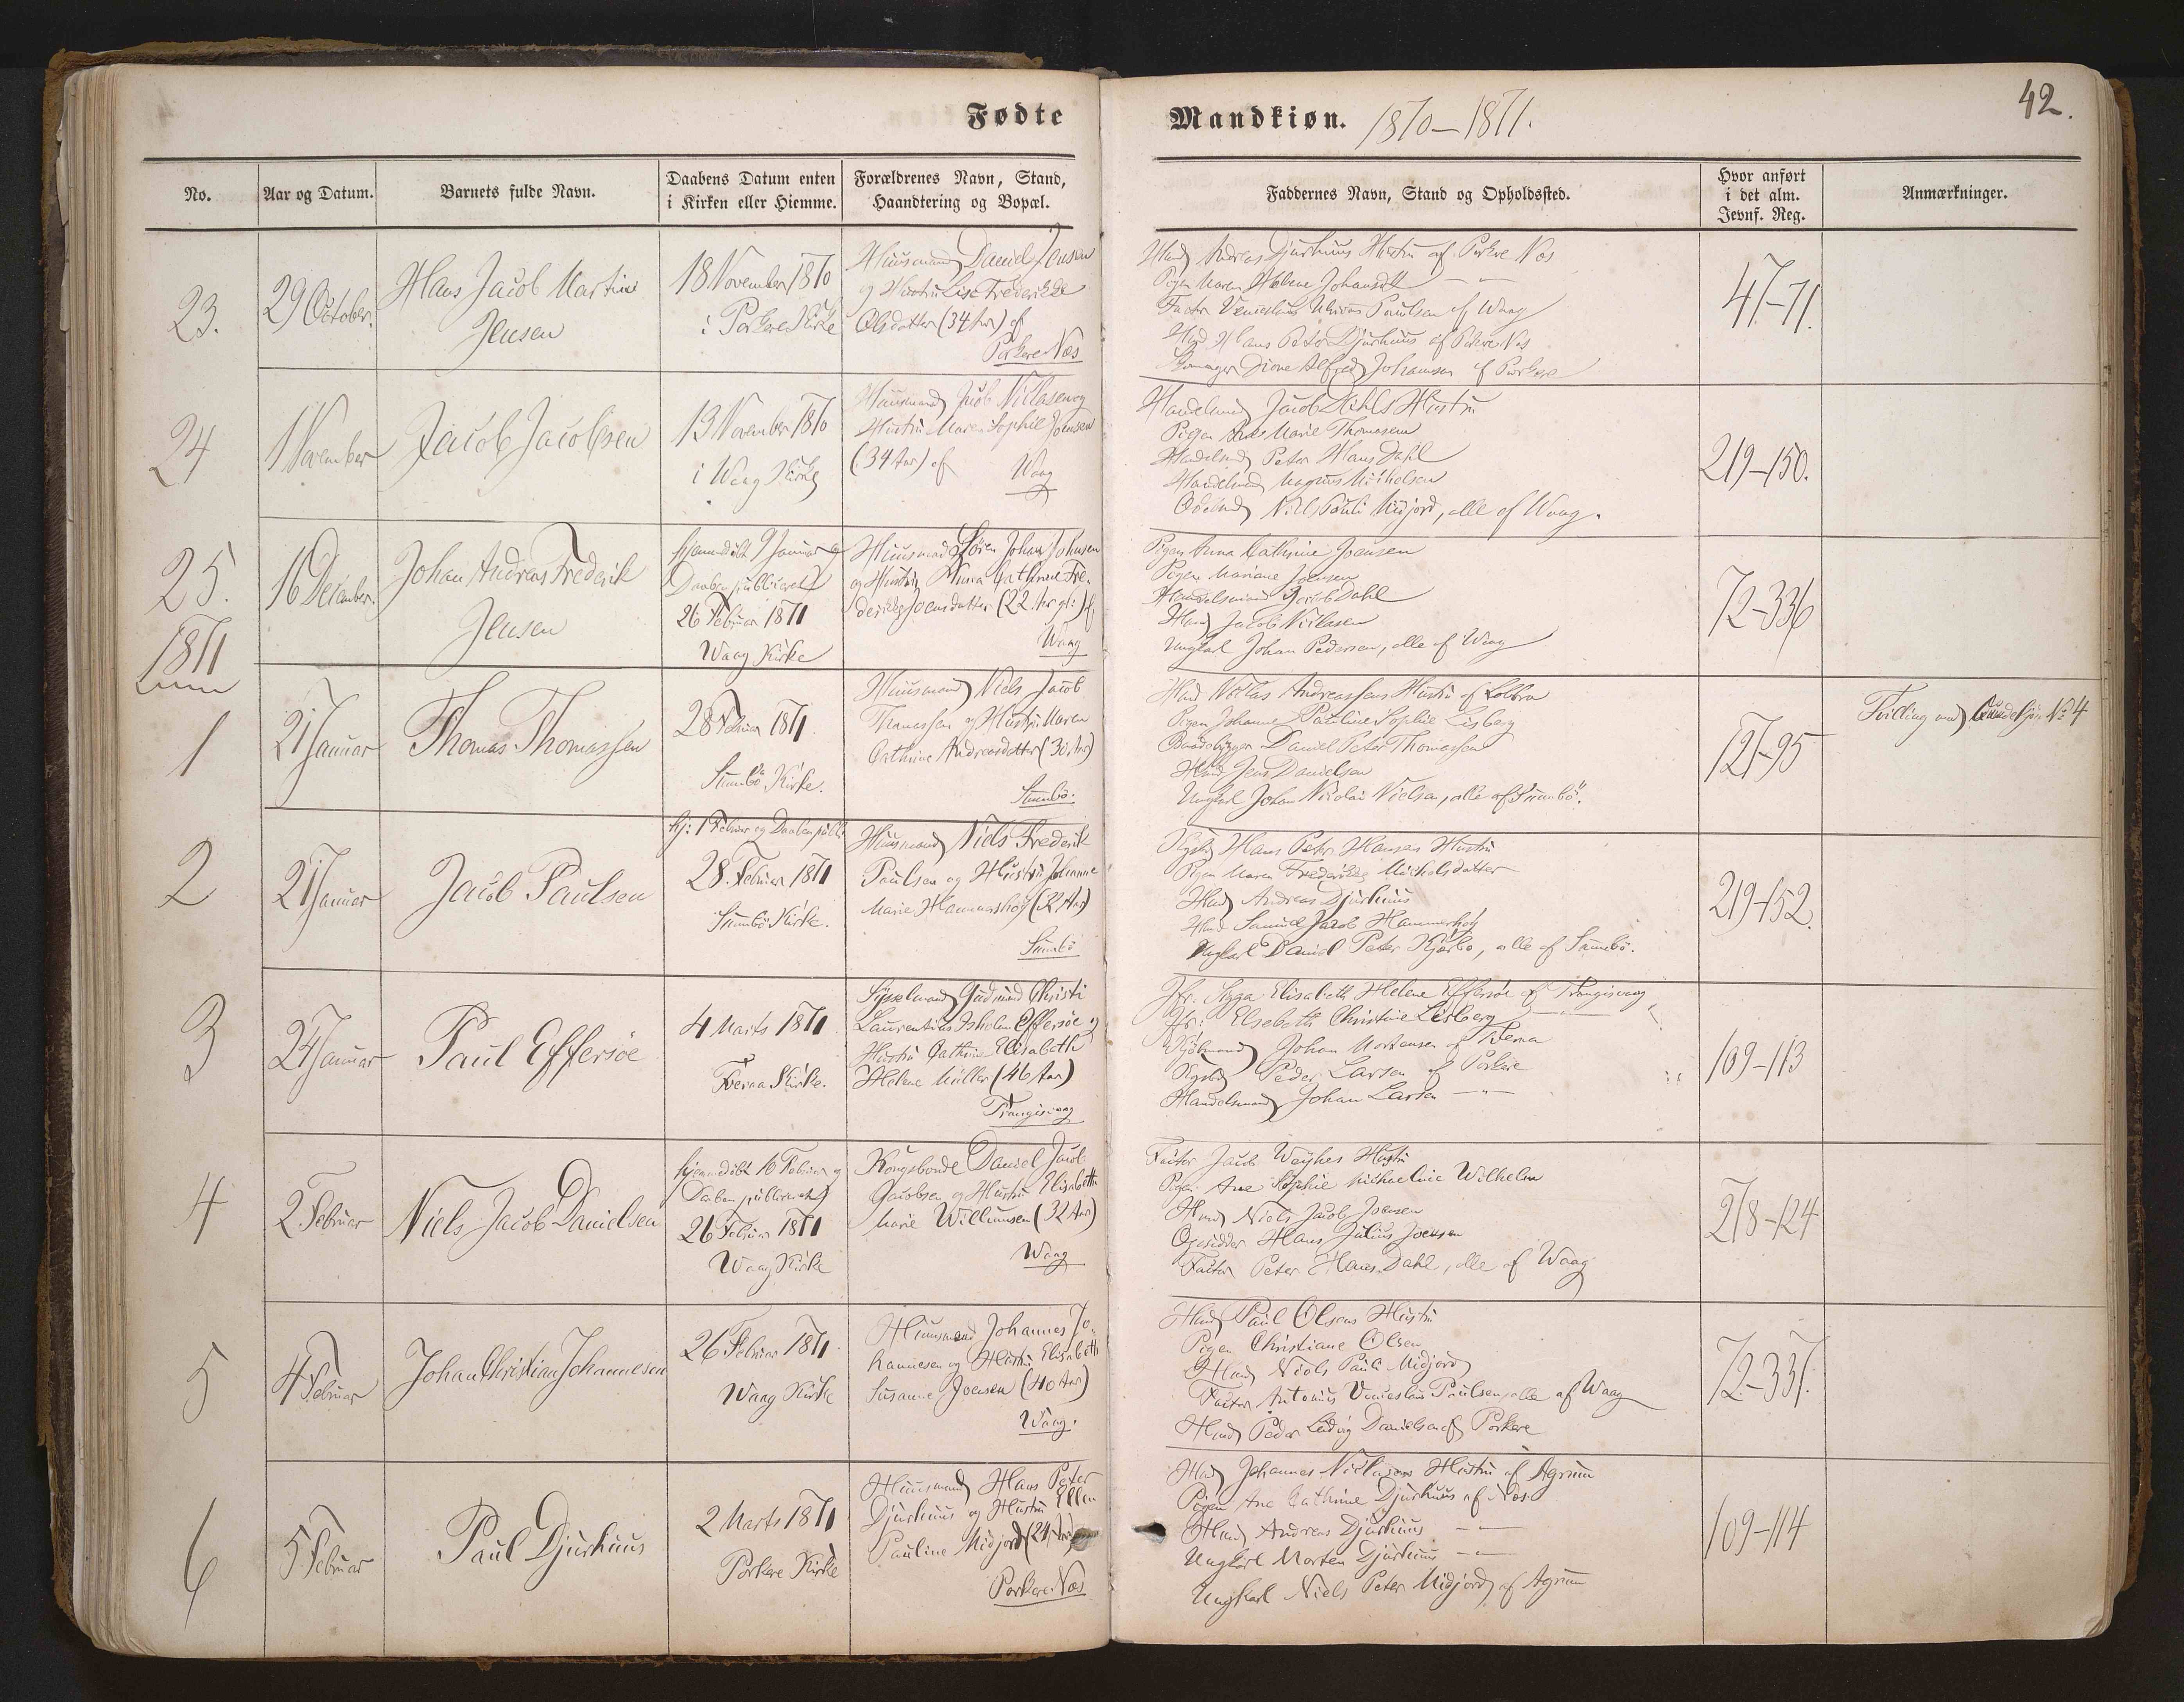 Fødte
Mandkiøn. 1870–1871.
42.
No.
Aar og Datum.
Barnets fulde Navn.
Daabens Datum enten
i Kirken eller Hiemme.
Forældrenes Navn, Stand,
Haandtering og Bopæl.
Faddernes Navn, Stand og Opholdssted.
Hvor anført
i det alm.
Jevnf. Reg.
Anmærkninger.
23.
29 October.
Hans Jacob Martin
Jensen
18 November 1870
i Porkere Kirke
Huusmand Daniel Jensen
og Hustru Lise Frederikke
Olsdatter (34 Aar) af
Porkere Næs
Hmd Andreas Djurhuus Hustru af Porkere Næs
Pigen Maren Helene Johansdtt — —
Factor Paulsen af Waag
Hmd Hans Peter Djurhuus af Porkere Næs
Alfred Johansen af Porkere
47–71.
24
1 November
Jacob Jacobsen
13 November 1870
i Waag Kirke
Huusmand Jacob Niclasen og
Hustru Maren Sophie Joensen
(34 Aar) af Waag
Handelsmd Jacob Dahls Hustru
Pigen Marie Thomasen
Handelsmd Peter Hans Dahl
Handelsmd Magnus Michelsen
Niels Pauli Midjord, alle af Waag.
219–150.
25.
16 December.
Johan Andreas Frederik
Jensen
hjemmedöbt 9 Januar og
Daaben publiceret
26 Februar 1871
Waag Kirke
Huusmand Sören Johan Johnsen
og Hustru Anna Cathrine Fre-
derikke Joensdatter (22 Aar gl:) af
Waag
Pigen Anna Cathrine Joensen
Pigen Mariane Joensen
Handelsmand Jacob Dahl
Hmd Jacob Niclasen
Ungkarl Johan Pedersen, alle af Waag
72–336
1871
1
21 Januar
Thomas Thomassen
28 Februar 1871.
Sumbö Kirke.
Huusmand Niels Jacob
Thomassen og Hustru Maren
Cathrine Andreasdatter (30 Aar)
Sumbö.
Hmd Niclas Andreassens Hustru af
Pigen Johanne Pauline Sophie Lisberg
Daniel Peter Thomassen
Hmd Jens Danielsen
Ungkarl Johan Nicolai Nielsen, alle af Sumbö.
127–95
Tvilling med Qvindekjön No 4
2
21 Januar
Jacob Paulsen
hj: 1 Februar og Daaben publ:
28. Februar 1871
Sumbö Kirke.
Huusmand Niels Frederik
Paulsen og Hustru Johanne
Marie Hammershöj (32 Aar)
Sumbö
Hans Peter Hansens Hustru
Pigen Maren Frederikke Michelsdatter
Hmd Andreas Djurhuus
Hmd Samuel Jacob Hammershöj
Ungkarl Daniel Peter Kjærbo, alle af Sumbö.
219–152.
3
24 Januar
Paul Effersöe
4 Marts 1871
Tveraa Kirke.
Sysselmand Gudmund Christi
Laurentius Isholm Effersöe og
Hustru Cathrine Elisabeth
Helene Müller (46 Aar)
Trangisvaag
Jfr: Elisabeth Helene Effersöe af Trangisvaag
Jfr: Elsebeth Christine Lisberg — —
Johan Mortensen af Tveraa
Peder Larsen af Porkere
Handelsmand Johan Larsen — " —
109–113
4
2 Februar
Niels Jacob Danielsen
hjemmedöbt 16 Februar og
Daaben publiceret
26 Februar 1871
Waag Kirke
Kongsbonde Daniel Jacob
Jacobsen og Hustru Elisabeth
Marie Willumsen (32 Aar)
Waag
Factor Jacob Weyhes Hustru
Pigen Ane Sophie Michaeline Wilhelm
Hmd Niels Jacob Joensen
Opsidder Hans Julius Joensen
Factor Peter Hans Dahl, alle af Waag
218–124
5
4 Februar
Johan Christian Johannesen
26 Februar 1871.
Waag Kirke
Huusmand Johannes Jo-
hannesen og Hustru Elisabeth
Susanne Joensen (40 Aar)
Waag.
Hmd Paul Olsens Hustru
Pigen Christiane Olsen
Hmd Niels Pauli Midjord
Factor Antonius Venceslaus Paulsen, alle af Waag
Hmd Peder Ludvig Danielsen af Porkere
72–337.
6
5 Februar
Paul Djurhuus
2 Marts 1871
Porkere Kirke
Huusmand Hans Peter
Djurhuus og Hustru Ellen
Pauline Midjord (24 Aar)
Porkere Næs
Hmd Johannes Niclasens Hustru af Agrum
Pigen Ane Cathrine Djurhuus af Næs
Hmd Andreas Djurhuus — —
Ungkarl Morten Djurhuus — —
Ungkarl Niels Peter Midjord af Agrum
109–114